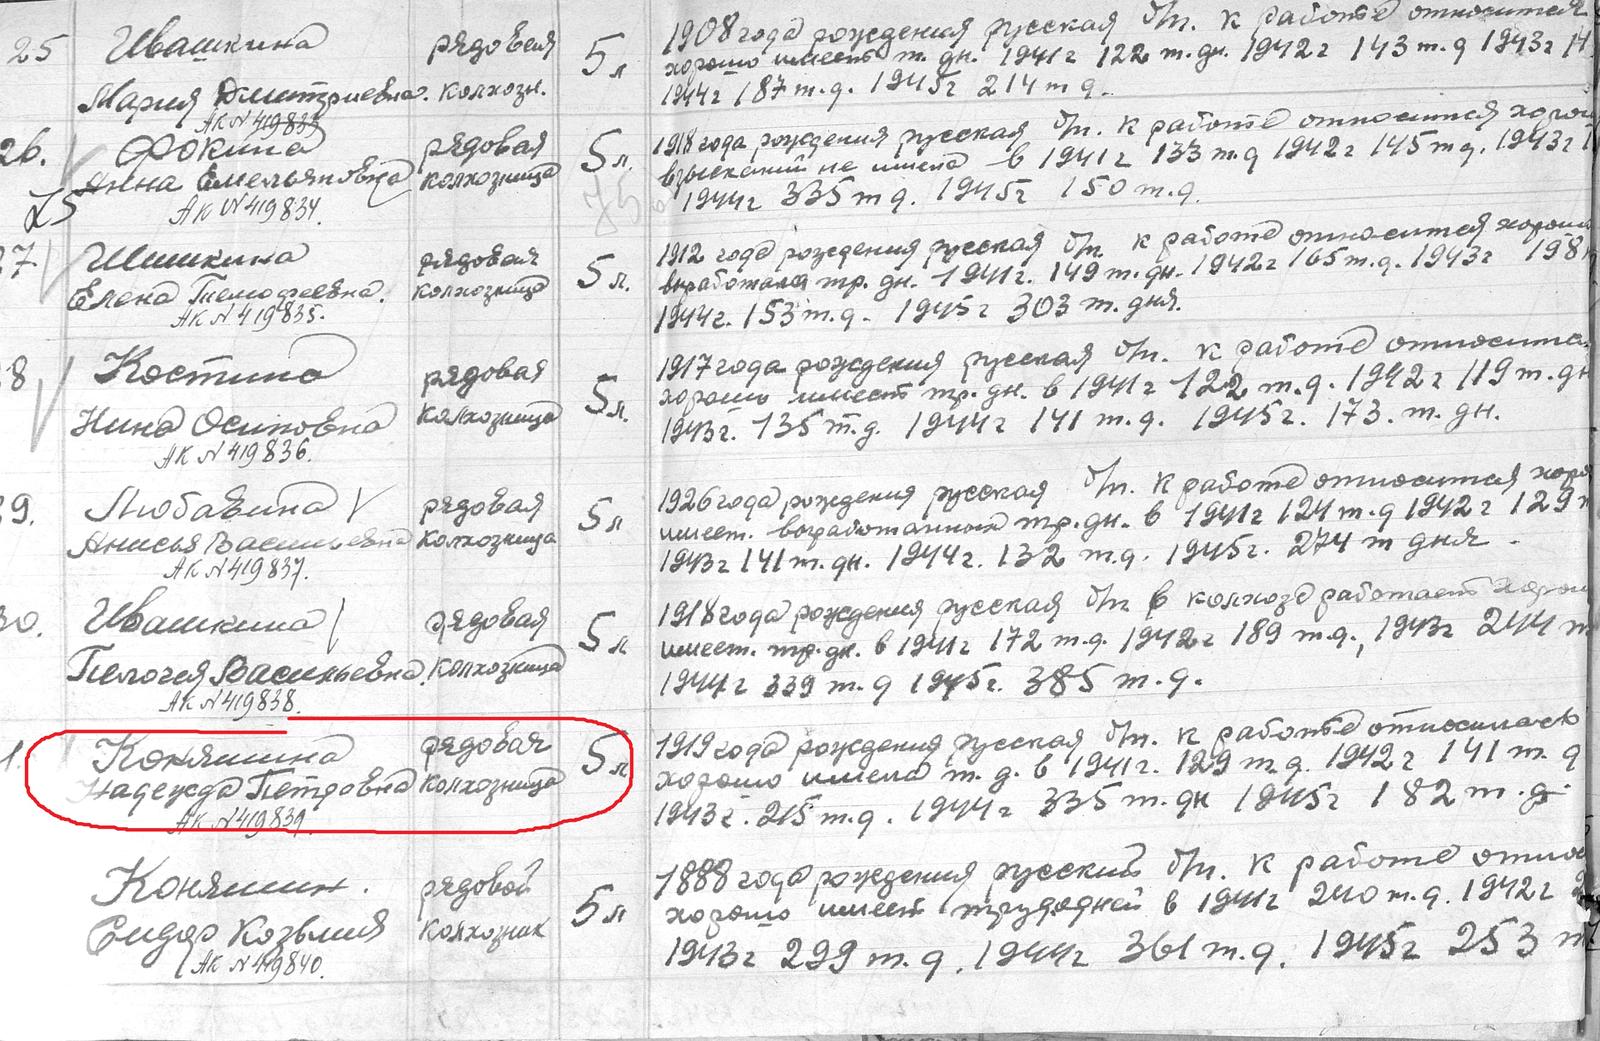 25 Ивашкина рядовая 5 л 1908 года рождения русская б/п. к работе относится
Мария Дмитриевна. колхозн. хорошо имеет т. дн. 1941 г 122 т. дн. 1942 г 143 т. д 1943 г
АК N 419833 1944 г 187 т. д. 1945 г 214 т д.
26. Фокина рядовая 5 л. 1918 года рождения русская б/п. к работе относится
Анна Емельяновна колхозница взысканий не имела в 1941 г 133 т. д 1942 г 145 т д. 1943 г
25 АК N 419834. 1944 г 335 т д. 1945 г 150 т. д.
27 Шишкина рядовая 5 л. 1912 года рождения русская б/п. к работе относится хорошо
Елена Тимофеевна. колхозница выработала тр. дн. 1941 г. 149 т. дн. 1942 г 165 т. д. 1943 г 198
АК N 419835. 1944 г. 153 т. д. 1945 г 303 т. дня.
8 Костина рядовая 5 л. 1917 года рождения русская б/п. к работе относится
Нина Осиповна колхозница хорошо имеет тр. дн. в 1941 г 122 т. д. 1942 г 119 т. дн
АК N 419836. 1943 г. 135 т. д. 1944 г 141 т. д. 1945 г. 173. т. дн.
9. Любавина рядовая 5 л 1926 года рождения русская б/п. к работе относится
Анисья Васильевна колхозница имеет. выработанных тр. дн. в 1941 г 124 т. д 1942 г 129
АК N 419837. 1943 г 141 т. дн. 1944 г. 132 т. д. 1945 г. 274 т дня.
30. Ивашкина рядовая 5 л 1918 года рождения русская б/п в колхозе работает
Пелогея Васильевна. колхозница имеет. тр. дн. в 1941 г 172 т. д. 1942 г 189 т. д., 1943 г 244
АК N 419838. 1944 г 339 т. д 1945 г. 385 т. д.
1. Коняшина рядовая 5 л 1919 года рождения русская б/п. к работе относилась
Надежда Петровна колхозница хорошо имела т. д. в 1941 г. 129 т. д. 1942 г 141 т. д
АК N 419839. 1943 г. 215 т. д. 1944 г 335 т. дн 1945 г 182 т. д.
Коняшин. рядовой 5 л 1888 года рождения русский б/п. к работе
Сидор Козьмич колхозник хорошо имеет трудодней в 1941 г 240 т. д. 1942 г
АК N 419840. 1943 г 299 т. д. 1944 г 361 т. д. 1945 г 253